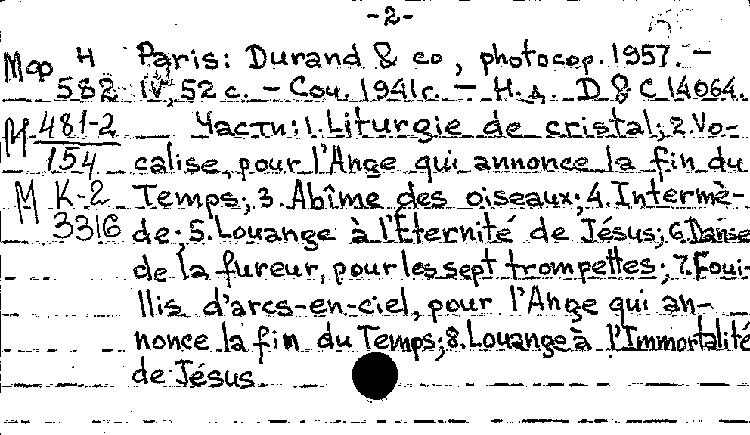 -2-
Мфр Н Paris: Durand & co, photocop. 1957. -
582 IV, 52 с. - Соч. 1941г. - Н.д. D & C 14064.
М 481-2 Части: 1. Liturgie de cristal; 2. Vo-
154 calise, pour l'Ange qui annonce la fin du
М К-2 Temps; 3. Abîme des oiseaux; 4. Intermè-
3316 de; 5. Louange à l'Eternité de Jésus; 6. Danse
de la fureur, pour les sept trompettes; 7. Foui-
llis d'arcs-en-ciel, pour l'Ange qui an-
nonce la fin du Temps; 8. Louange à l'Immortalité
de Jésus.